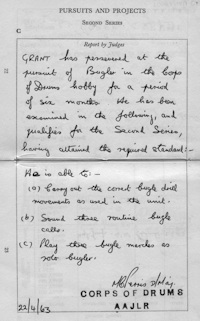 PURSUITS AND PROJECTS
SECOND SERIES
C
Report by Judges
GRANT has persevered at the
pursuit of Bugler in the Corps
of Drums hobby for a period
of six months. He has been
examined in the following, and
qualifies for the Second Series,
having attained the required standard:-
He is able to:-
(a) Carry out the correct bugle drill
movements as used in the unit.
(b) Sound three routine bugle
calls.
(c) Play three bugle marches as
solo bugler.
CORPS OF DRUMS
22/4/63 AAJLR